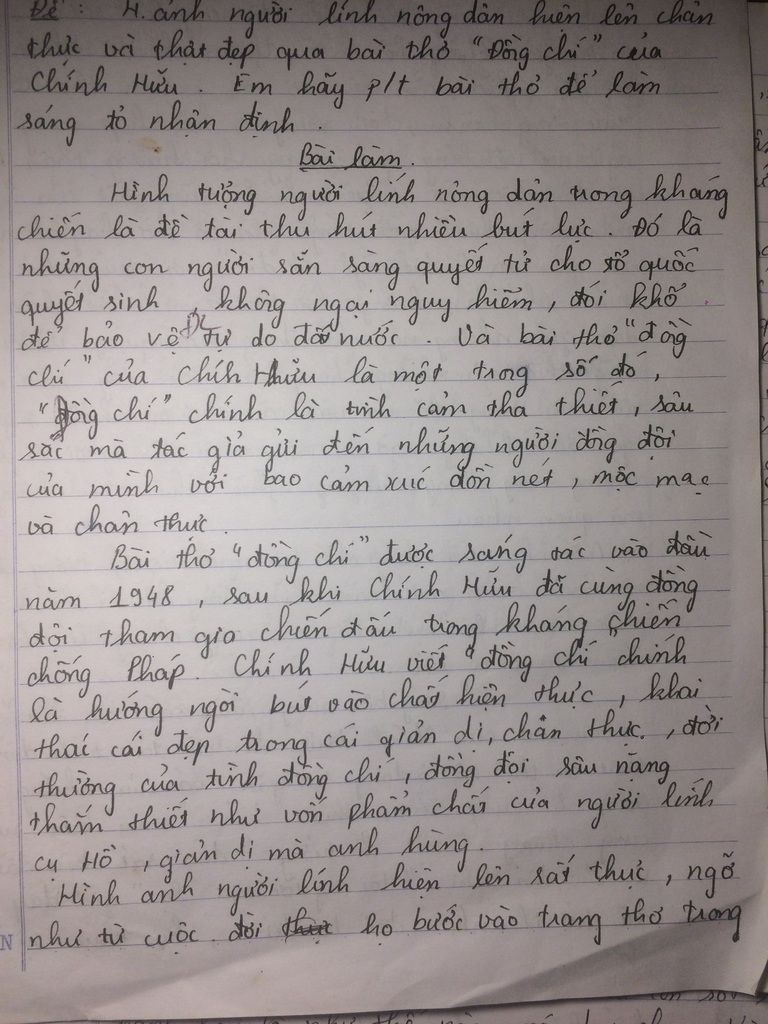 Đề : H. ảnh người lính nông dân hiện lên chân
thực và thật đẹp qua bài thơ "Đồng chí" của
Chính Hữu. Em hãy p/t bài thơ để làm
sáng tỏ nhận định.
Bài làm.
Hình tượng người lính nông dân trong kháng
chiến là đề tài thu hút nhiều bút lực. Đó là
những con người sẵn sàng quyết tử cho tổ quốc
quyết sinh, không ngại nguy hiểm, đói khổ
để bảo vệ tự do đất nước. Và bài thơ "đồng
chí" của Chính Hữu là một trong số đó,
"đồng chí" chính là tình cảm tha thiết, sâu
sắc mà tác giả gửi đến những người đồng đội
của mình với bao cảm xúc dồn nét, mộc mạc
và chân thực.
Bài thơ "đồng chí" được sáng tác vào đầu
năm 1948, sau khi Chính Hữu đã cùng đồng
đội tham gia chiến đấu trong kháng chiến
chống Pháp. Chính Hữu viết "đồng chí chính
là hướng ngòi bút vào chất hiện thực, khai
thác cái đẹp trong cái giản dị, chân thực, đời
thường của tình đồng chí, đồng đội sâu nặng
thắm thiết như vốn phẩm chất của người lính
cụ Hồ, giản dị mà anh hùng.
Hình ảnh người lính hiện lên rất thực, ngỡ
như từ cuộc đời họ bước vào trang thơ trong
N